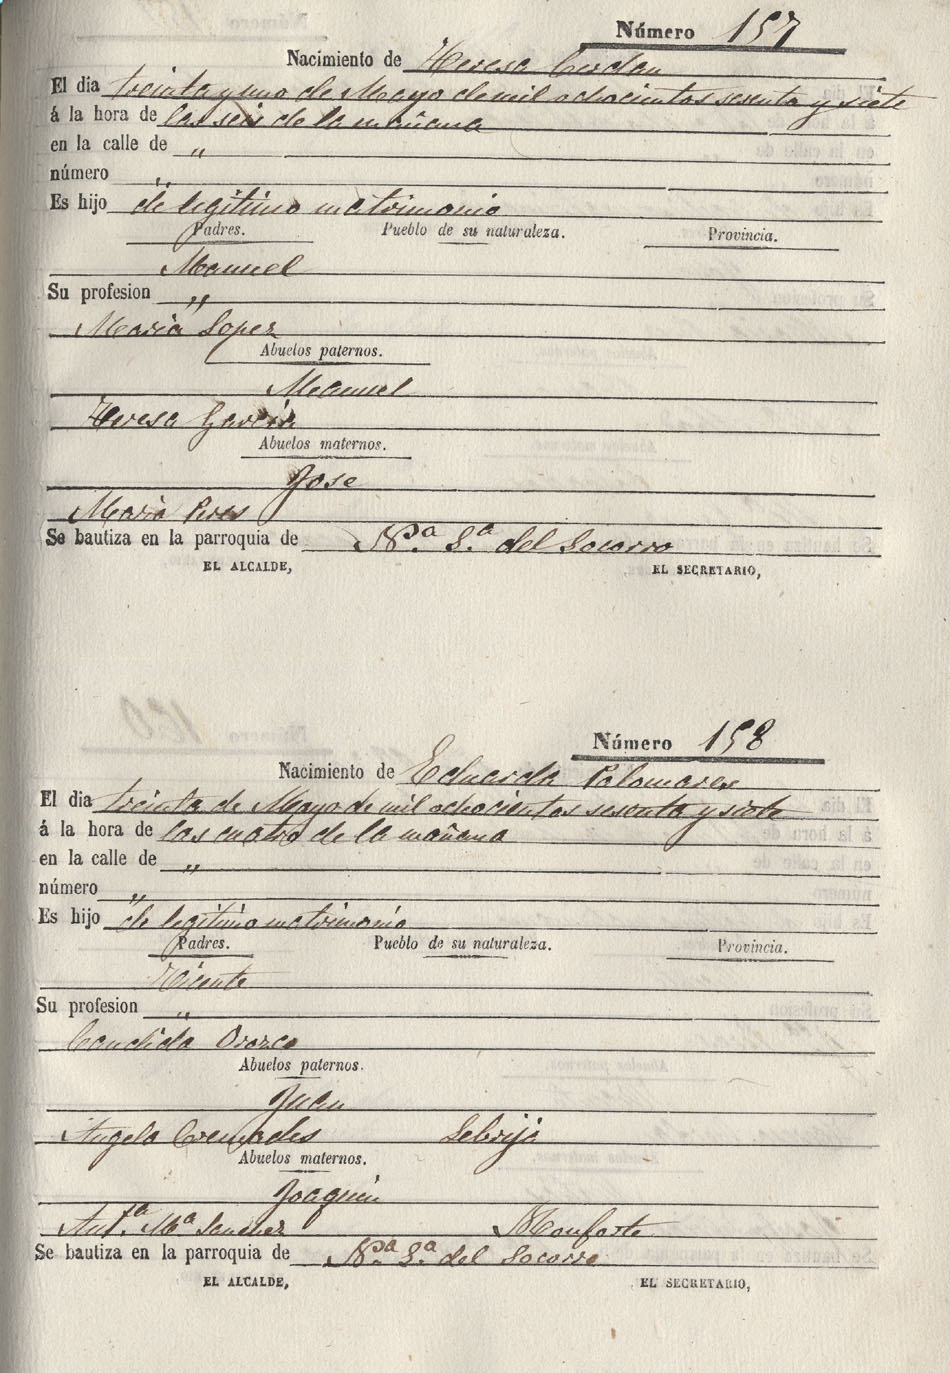 Número 157
Nacimiento de Teresa Cerdan
El dia treinta y uno de Mayo de mil ochocientos sesenta y siete
á la hora de las seis de la mañana
en la calle de "
número "
Es hijo de legitimo matrimonio
Padres. Pueblo de su naturaleza. Provincia.
Manuel
Su profesion "
Maria Lopez
Abuelos paternos.
Manuel
Teresa Garcia
Abuelos maternos.
Jose
Maria Peres
Se bautiza en la parroquia de Nª. Sª. del Socorro
EL ALCALDE, EL SECRETARIO,
Número 158
Nacimiento de Eduarda Palomares
El dia treinta de Mayo de mil ochocientos sesenta y siete
á la hora de las cuatro de la mañana
en la calle de "
número "
Es hijo de legitimo matrimonio
Padres. Pueblo de su naturaleza. Provincia.
Vicente
Su profesion "
Candida Orozco
Abuelos paternos.
Juan
Angela Cremades Lebrija
Abuelos maternos.
Joaquin
Antª. Mª Sanchez Monforte
Se bautiza en la parroquia de Nª. Sª. del Socorro
EL ALCALDE, EL SECRETARIO,